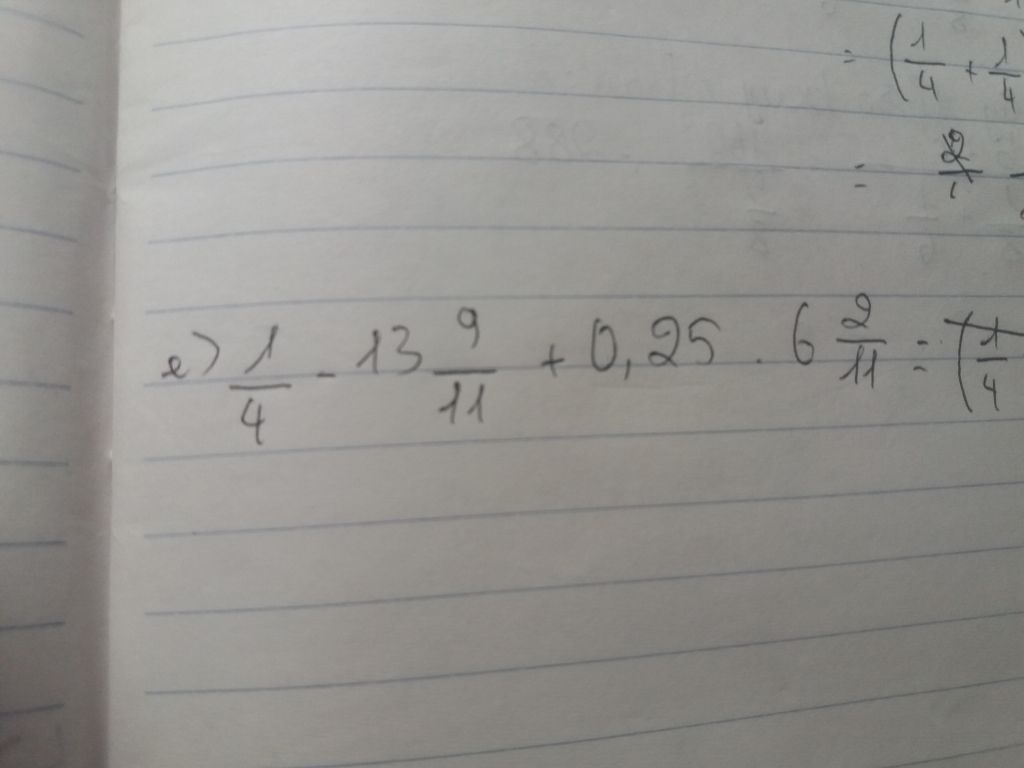 = (1/4 + 1/4
=
e) 1/4 - 13 9/11 + 0,25 . 6 2/11 = (1/4